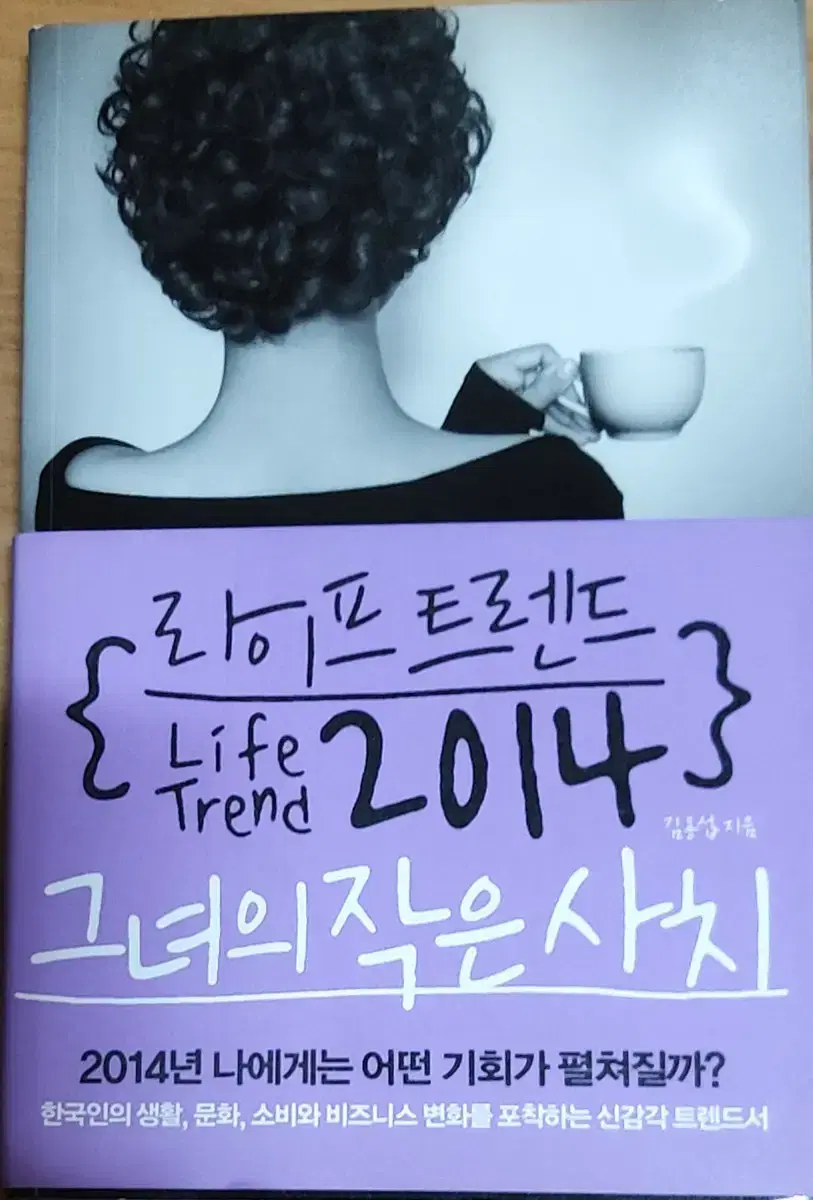 라이프 트렌드
Life
Trend
2014
김용섭 지음
그녀의 작은 사치
2014년 나에게는 어떤 기회가 펼쳐질까?
한국인의 생활, 문화, 소비와 비즈니스 변화를 포착하는 신감각 트렌드서